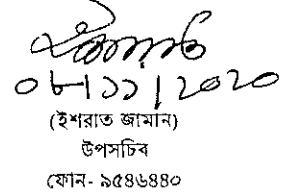 ০৮/১১/২০২০
(ইশরাত জামান)
উপসচিব
ফোন- ৯৫৪৬৪৪০